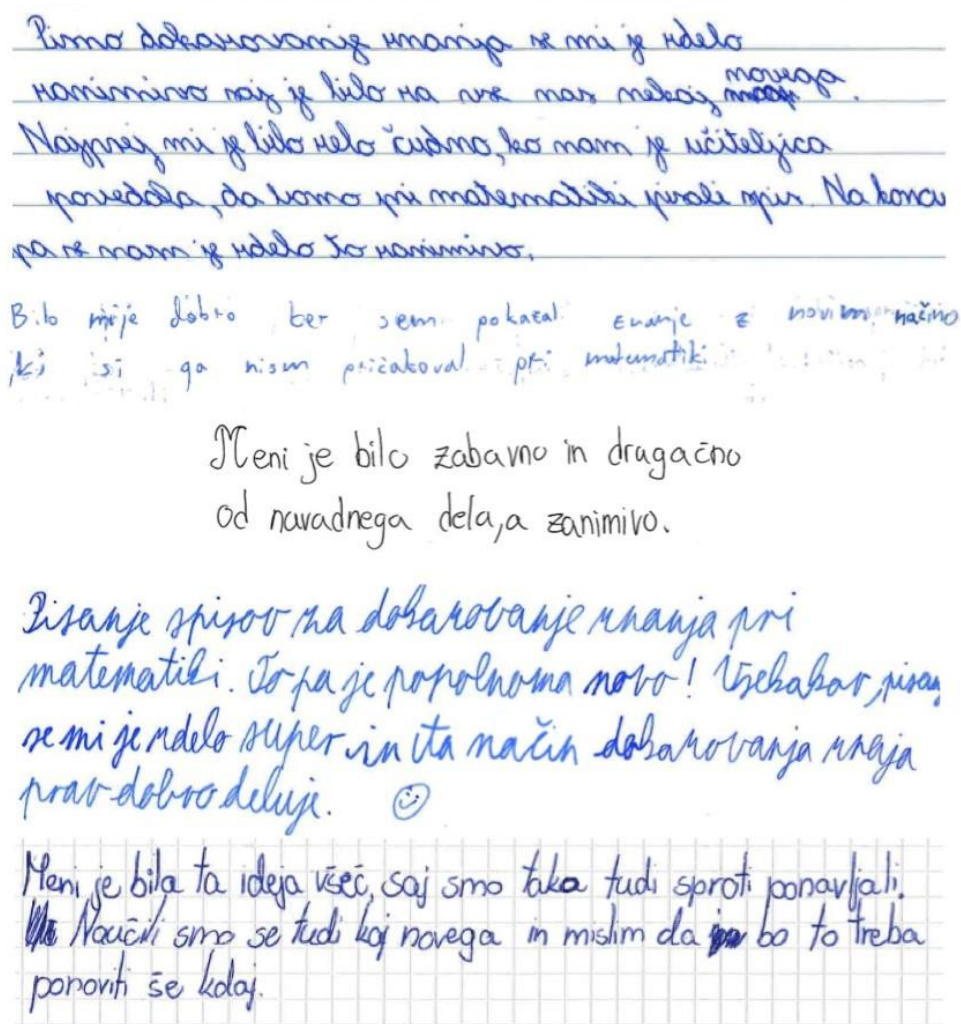 Pisno dokazovanje znanja se mi je zdelo
zanimivo saj je bilo za vse nas nekaj novega.
Najprej mi je bilo zelo čudno, ko nam je učiteljica
povedala, da bomo pri matematiki pisali spis. Na koncu
pa se nam je zdelo to zanimivo.
Bilo mi je dobro ker sem pokazal znanje z novim načino
,ki si ga nism pričakoval pri matematiki.
Meni je bilo zabavno in dragačno
od navadnega dela, a zanimivo.
Pisanje spisov za dokazovanje znanja pri
matematiki. To pa je popolnoma novo! Vsekakor,
se mi je zdelo super in ta način dokazovanja znaja
prav dobro deluje.
Meni je bila ta ideja všeč, saj smo tako tudi sproti ponavljali.
Naučili smo se tudi kaj novega in mislim da bo to treba
ponoviti še kdaj.